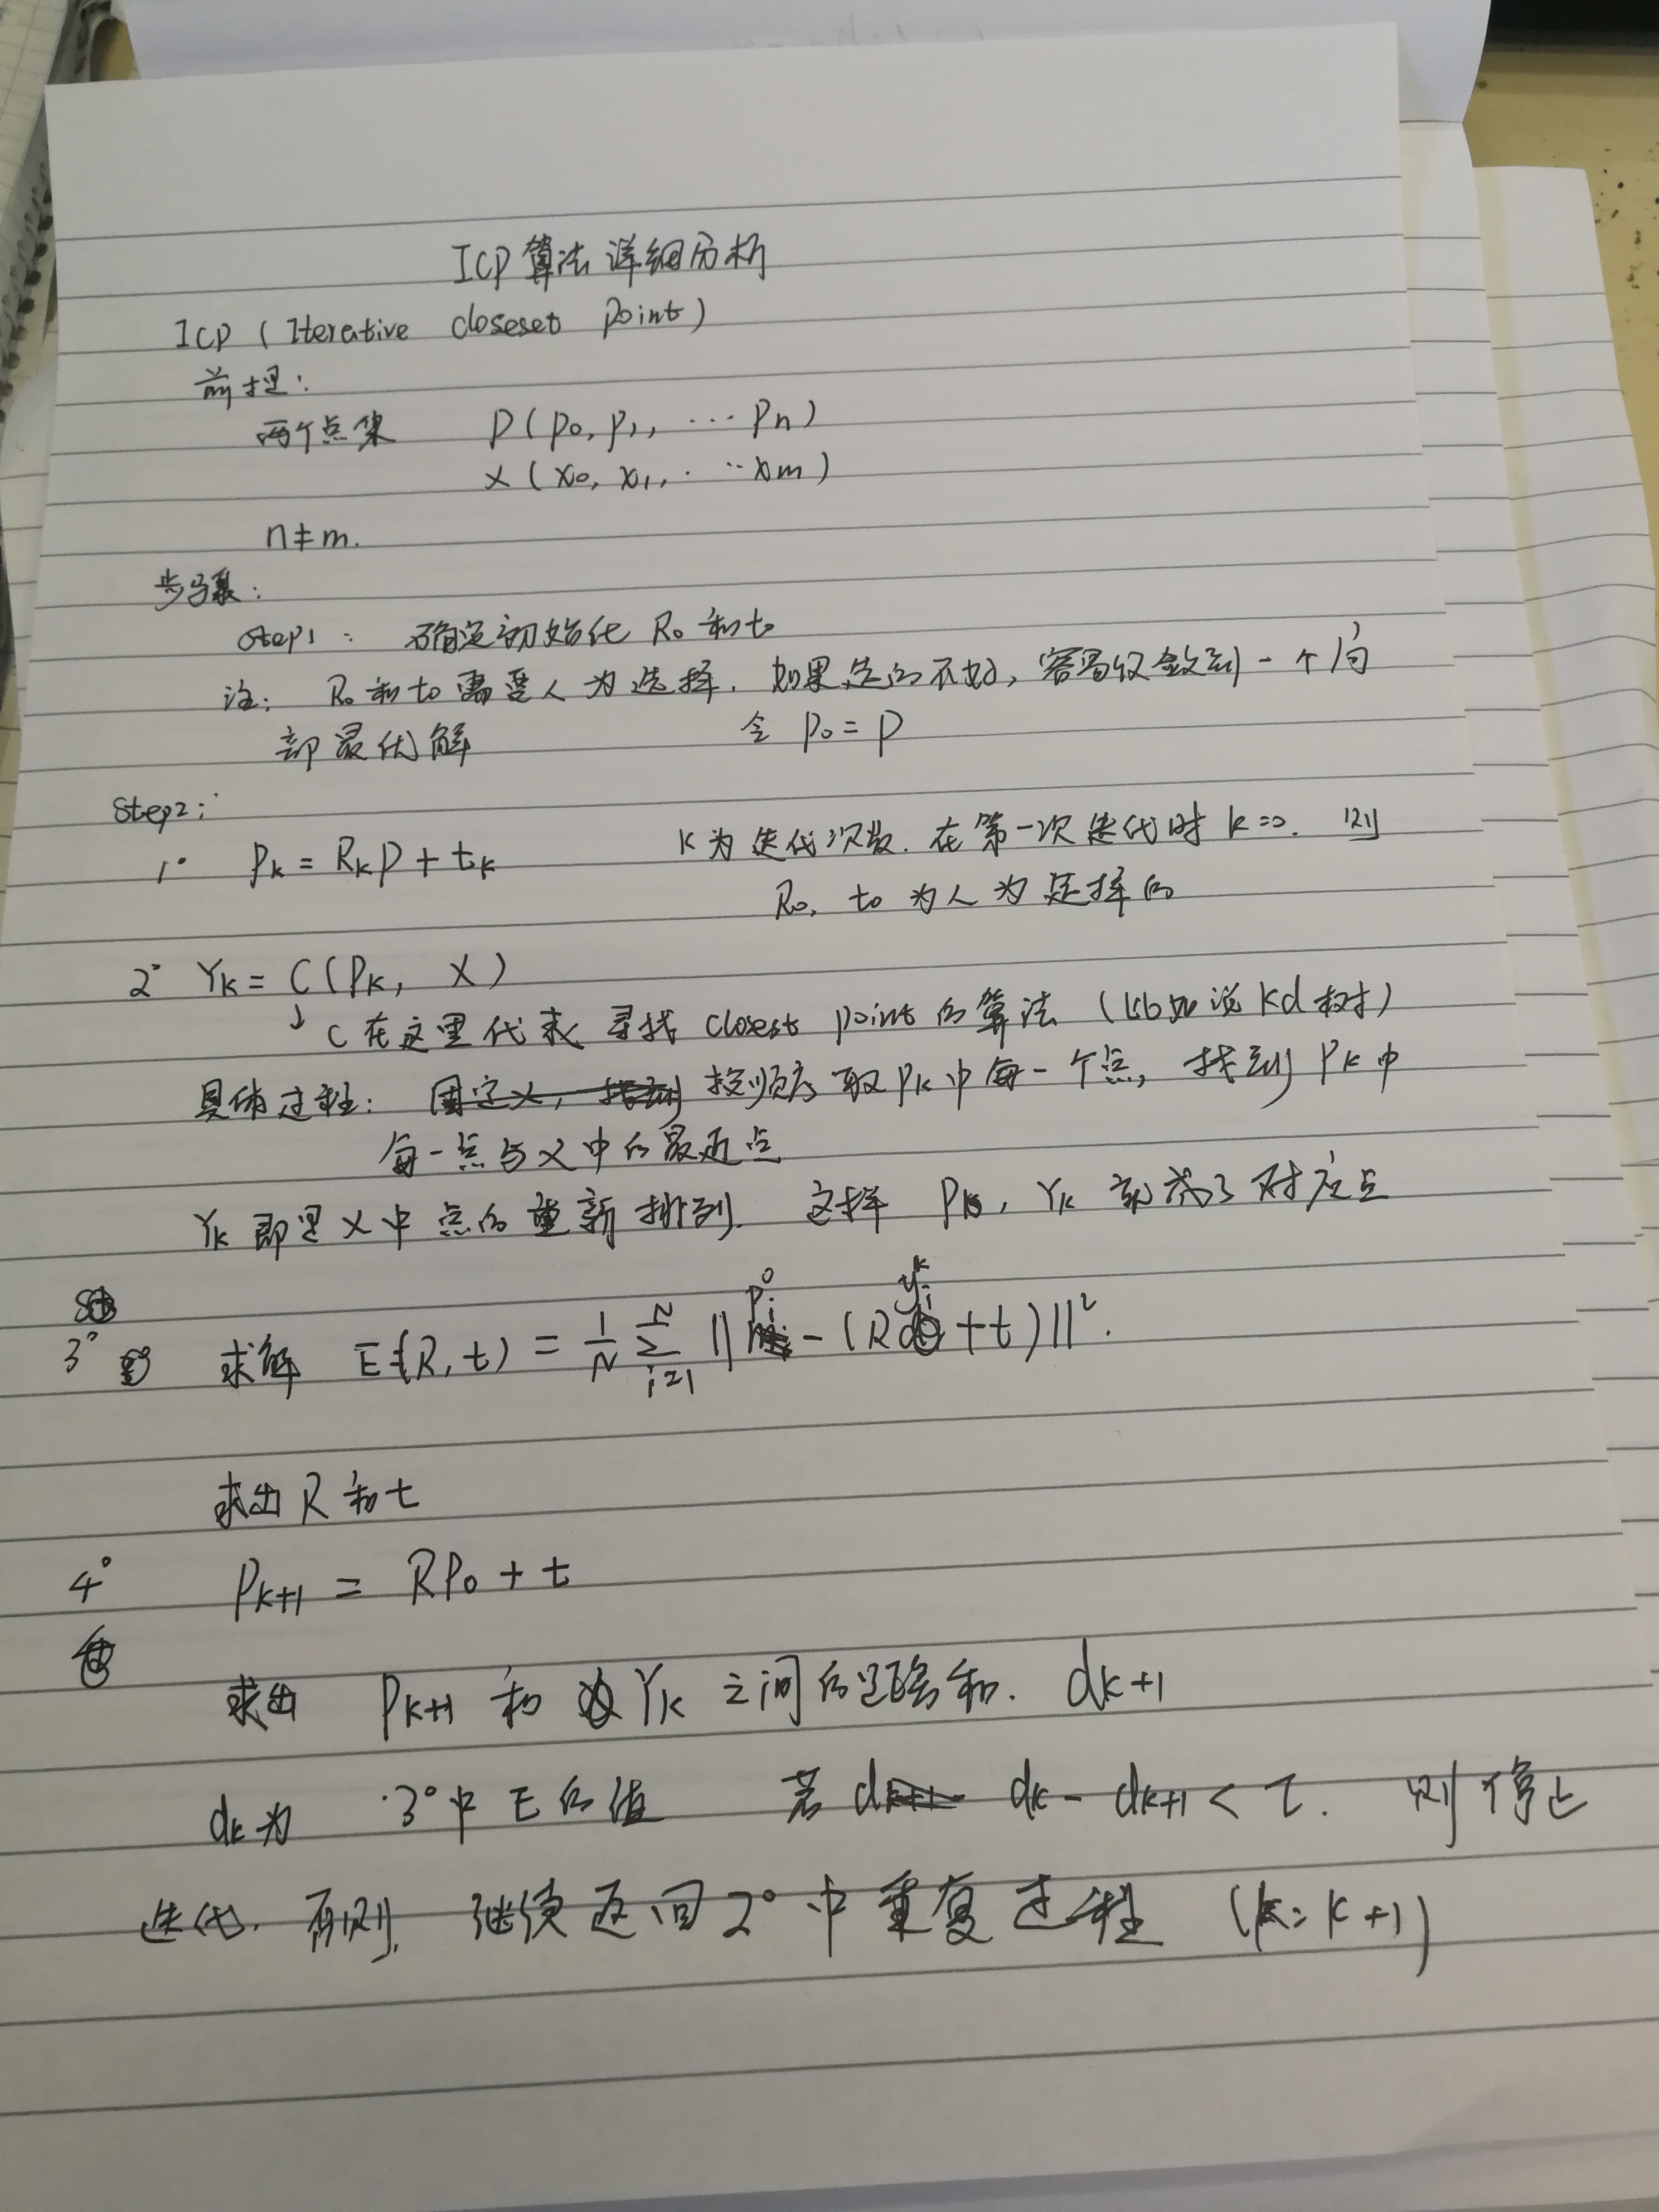 ICP算法详细分析
ICP (Iterative closeset point)
前提:
两个点集 P(p0, p1, ··· pn)
X(x0, x1, ··· xm)
n≠m.
步骤:
Step1: 确定初始化 R0 和 t0
注: R0 和 t0 需要人为选择. 如果选的不好, 容易收敛到一个局
部最优解 令 P0 = P
Step2:
1° Pk = RkP + tk K为迭代次数. 在第一次迭代时 k=0. 则
R0, t0 为人为选择的
2° Yk = C(Pk, X)
↓ C在这里代表寻找 closest point 的算法 (比如说 kd树)
具体过程: 固定X, 找到 按顺序取Pk中每一个点, 找到Pk中
每一点与X中的最近点
Yk 即是X中点的重新排列. 这样 Pk, Yk 就成了对应点
3° 求解 E(R, t) = 1/N Σ_{i=1}^{N} ||p_i^0 - (R y_i^k + t)||².
求出 R 和 t
4° Pk+1 = RP0 + t
求出 Pk+1 和 Yk 之间的距离和. dk+1
dk为 3°中E的值 若 dk+1 dk - dk+1 < τ. 则停止
迭代. 否则, 继续返回2°中重复过程 (k: k+1)